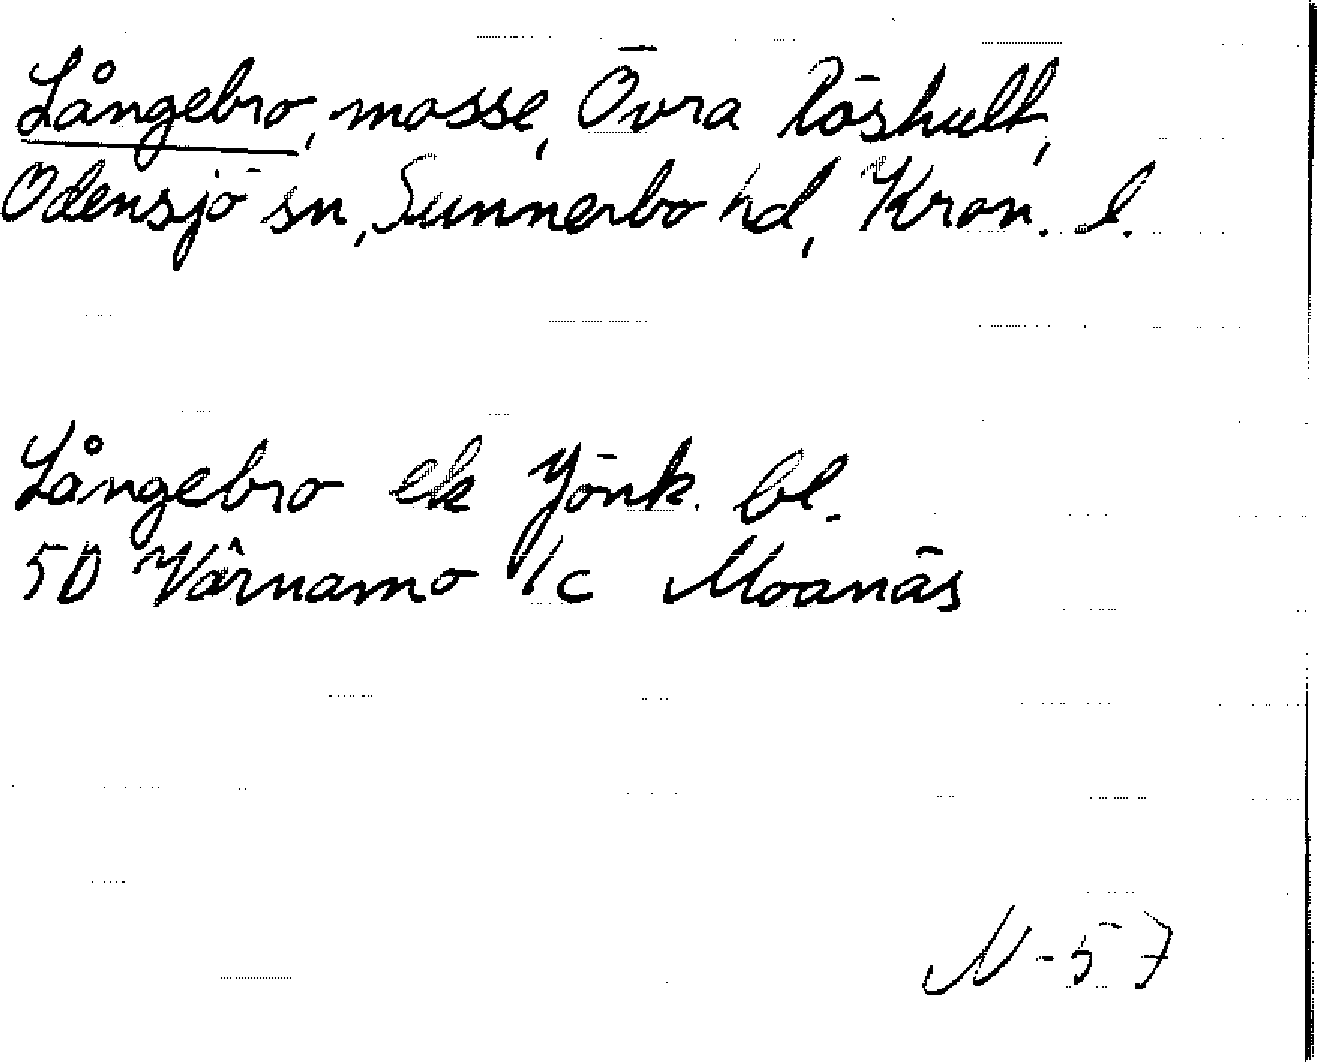 Långebro, mosse, Övra Röshult,
Odensjö sn, Sunnerbo hd, Kron. l.
Långebro ek Jönk. bl.
5D Värnamo 1c Moanäs
N-57